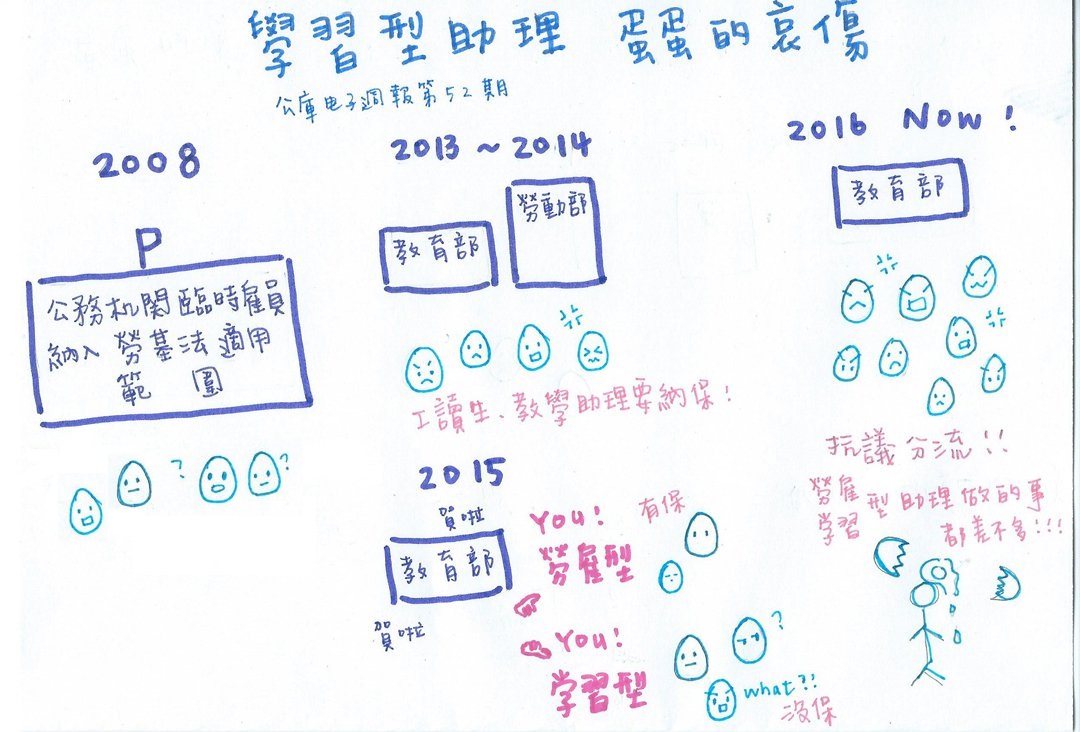 學習型助理 蛋蛋的哀傷
公庫电子週報第52期
2008
公務机関臨時雇員
納入勞基法適用
範圍
?
?
2013~2014
教育部
勞動部
工讀生、教學助理要納保!
2015
賀啦
教育部
賀啦
You!
勞雇型
有保
You!
学習型
?
what?!
沒保
2016 Now!
教育部
抗議分流!!
勞雇
学習
型助理做的事
都差不多!!!